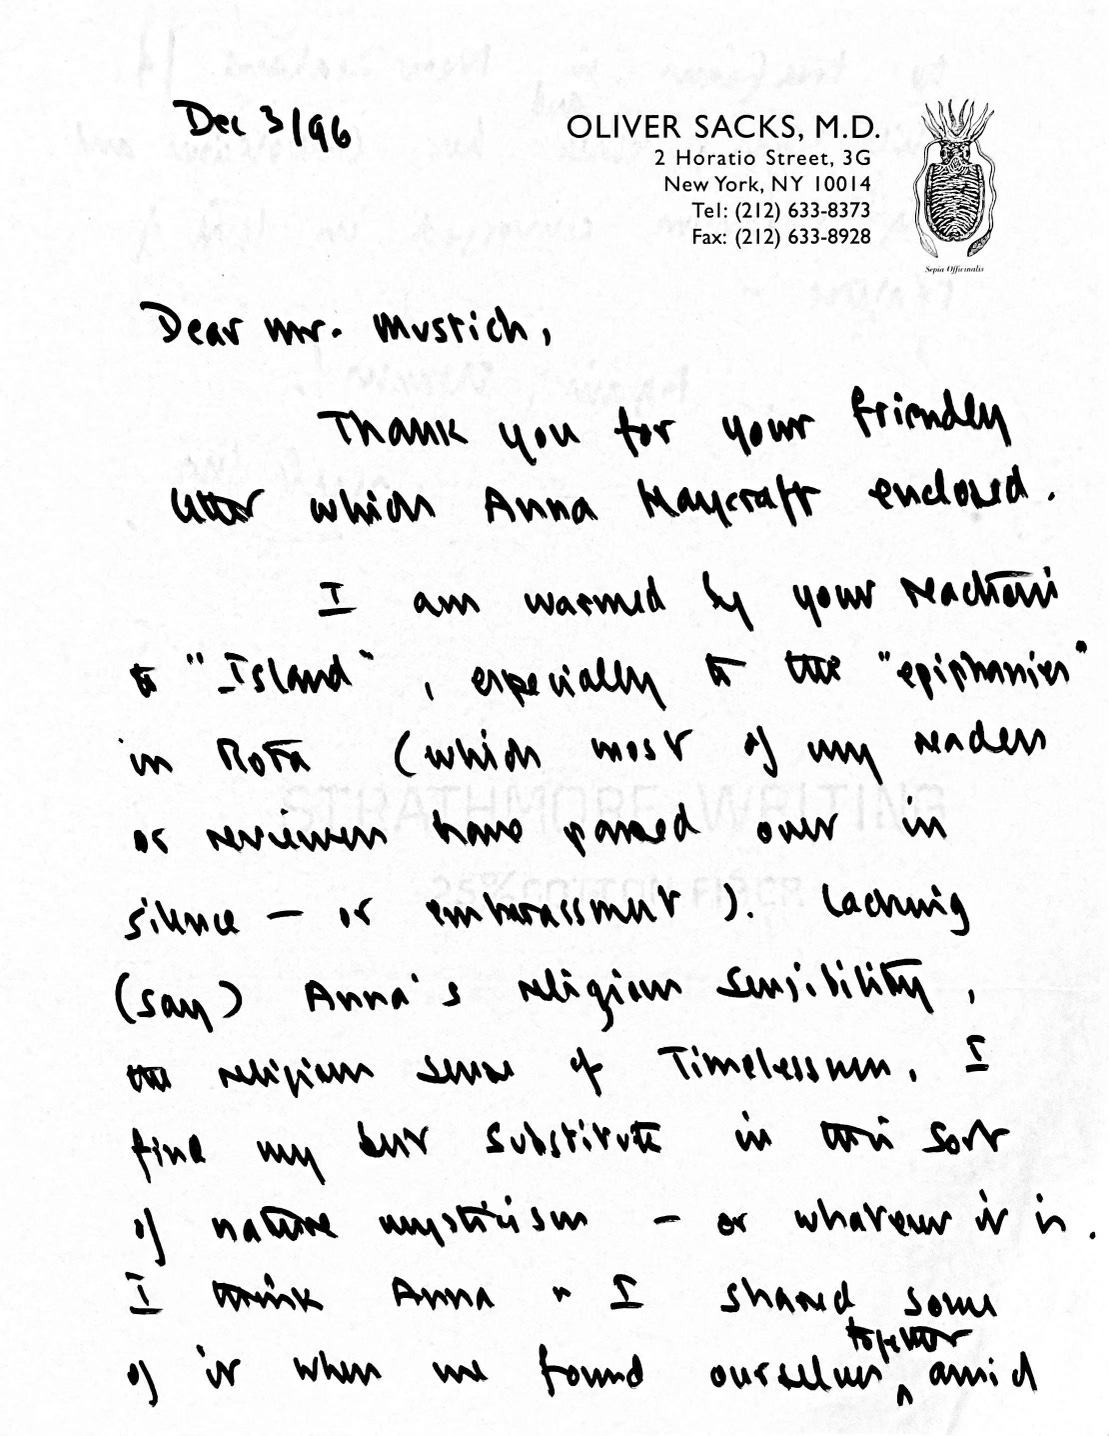 Dec 3/96
OLIVER SACKS, M.D.
2 Horatio Street, 3G
New York, NY 10014
Tel: (212) 633-8373
Fax: (212) 633-8928
Sepia Officinalis
Dear Mr. Mustich,
Thank you for your friendly
letter which Anna Haycraft enclosed.
I am warmed by your reactions
to "Island", especially to the "epiphanies"
in Rota (which most of my readers
or reviewers have passed over in
silence — or embarassment). Lacking
(say) Anna's religious sensibility,
the religious sense of Timelessness, I
find my best substitute in this sort
of nature mysticism — or whatever it is.
I think Anna " I shared some
of it when we found ourselves together amid
STRATHMORE WRITING
25% COTTON FIBER